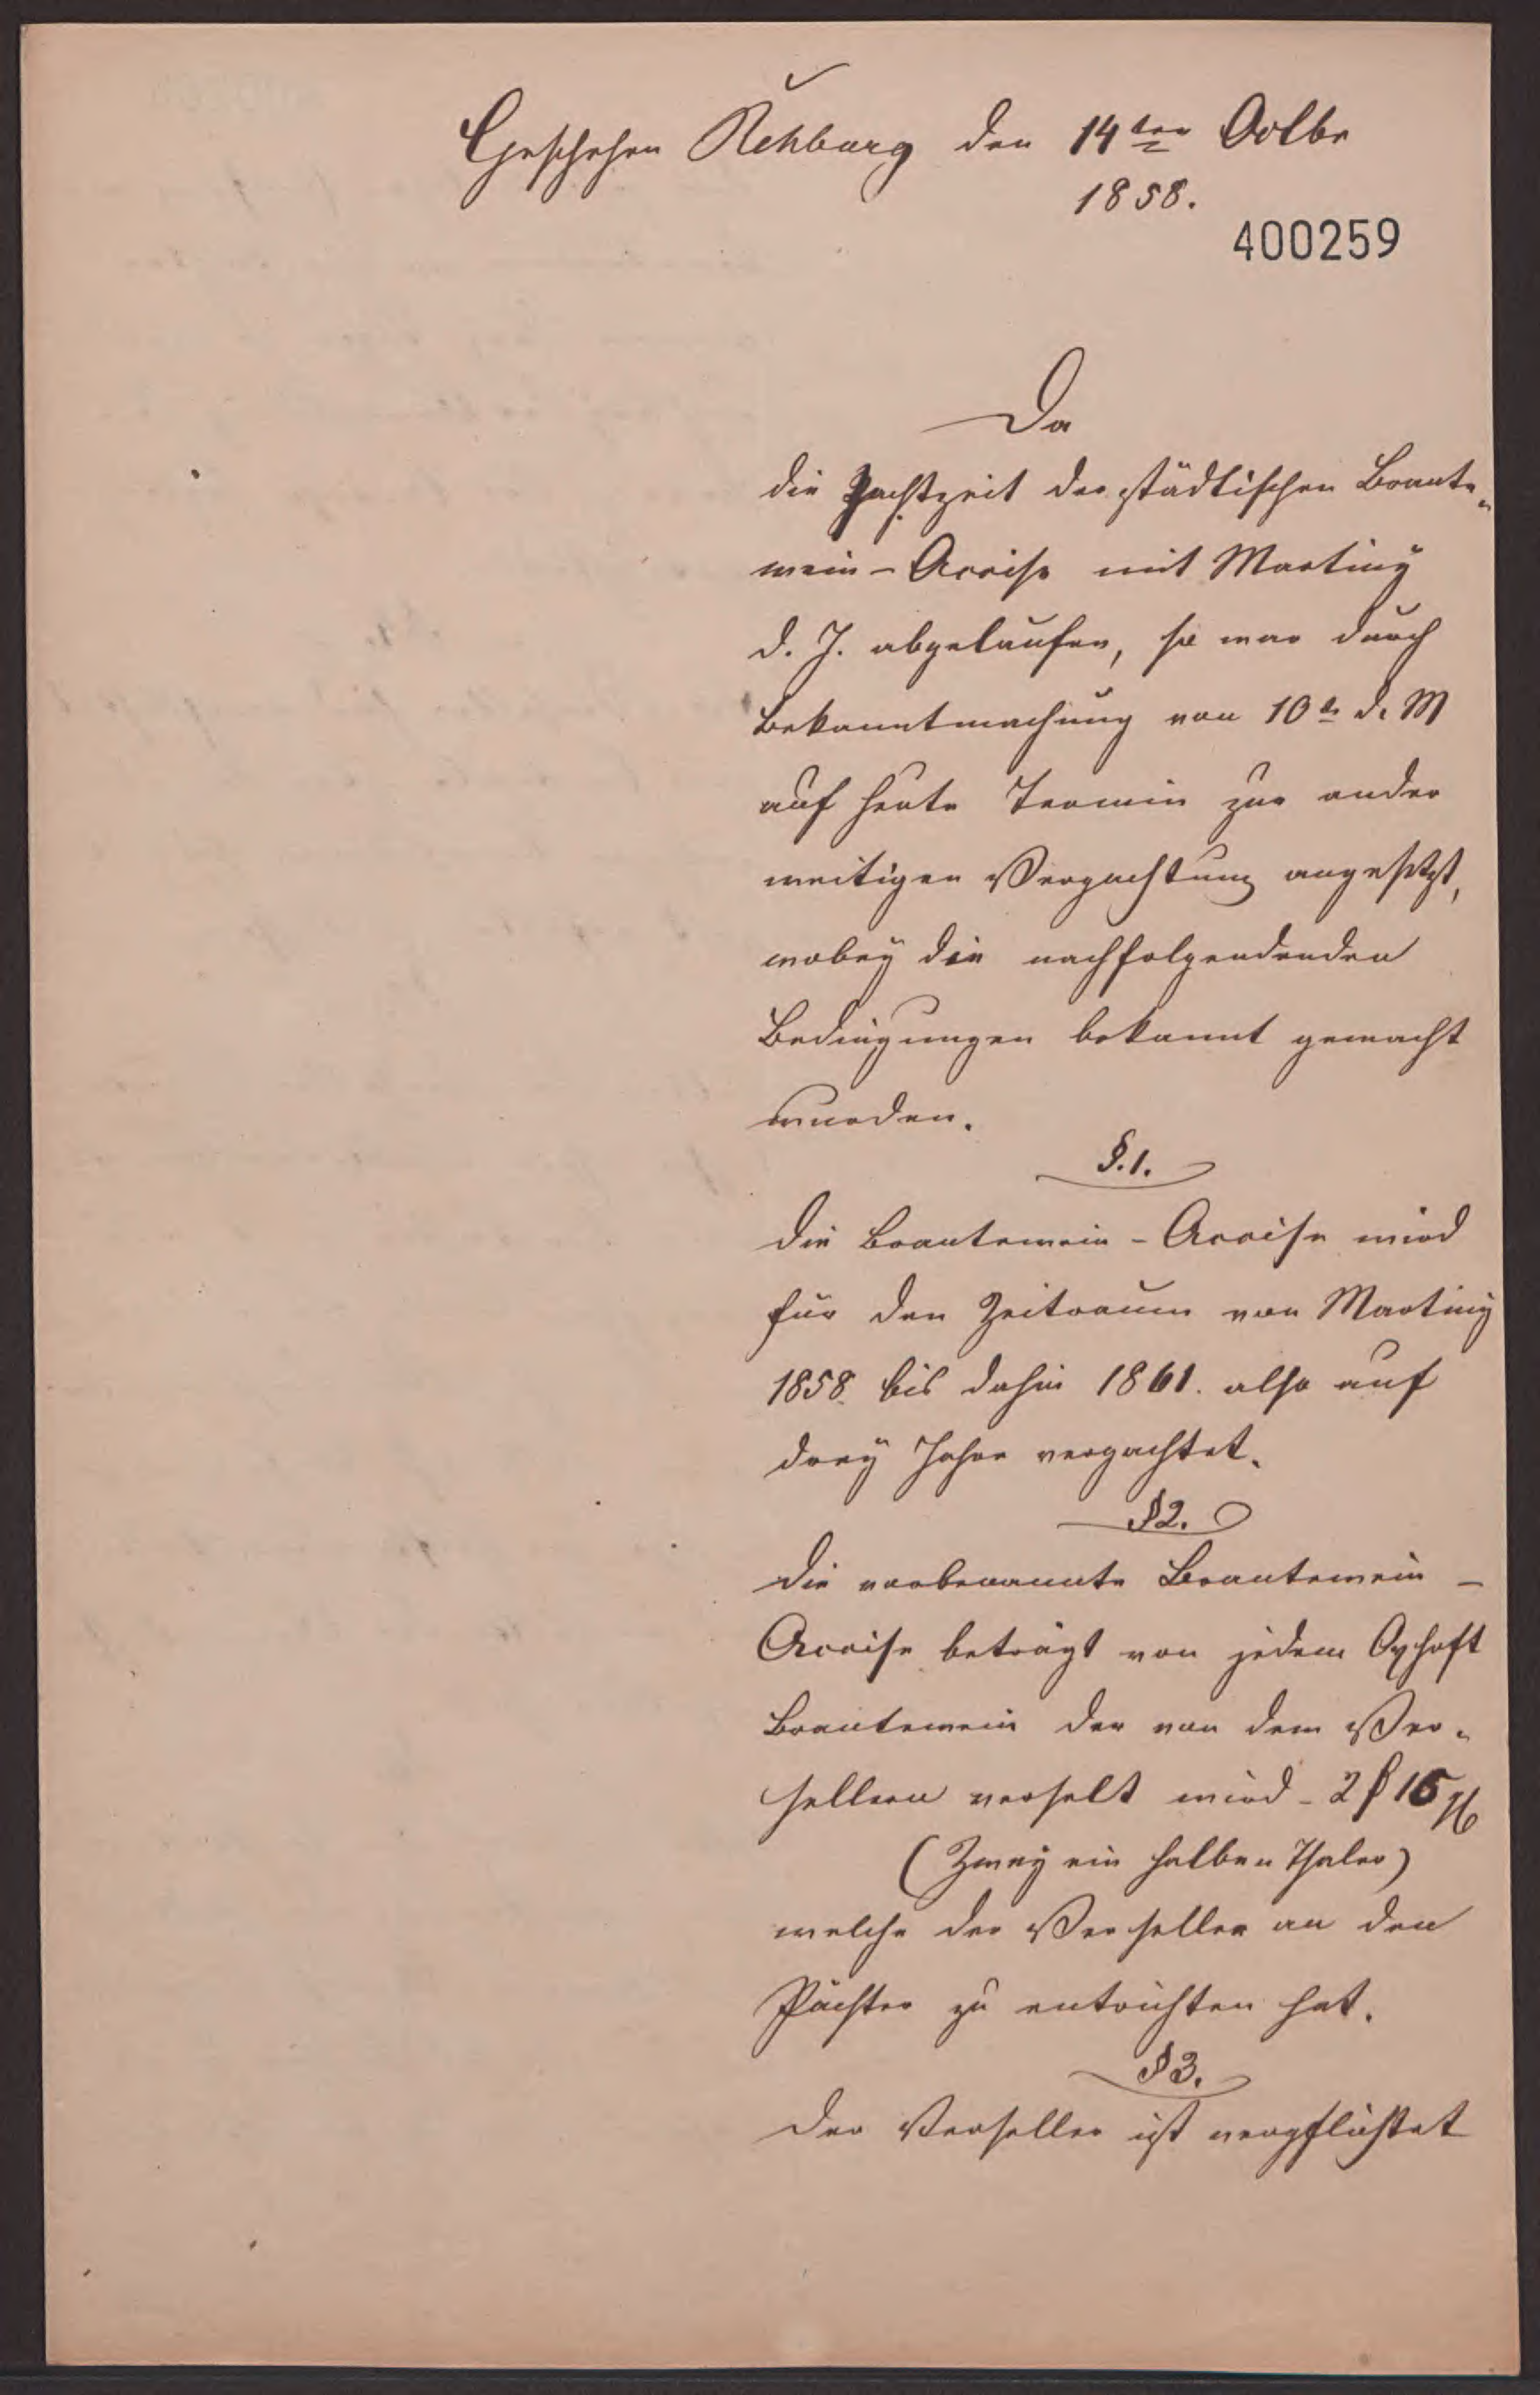 Geschehen Rehburg den 14ten Octbr
1858.
400259
Da
die Pachtzeit der städtischen Brante-
wein-Accise mit Martiny
d. J. abgelaufen, so war durch
Bekanntmachung von 10t d. M
auf heute Termin zur ander
weitigen Verpachtung angesetzt,
wobey die nachfolgendenden
Bedingungen bekannt gemacht
wurden.
§.1.
Die Brantewein-Accise wird
für den Zeitraum von Martiny
1858. bis dahin 1861. also auf
drey Jahre verpachtet.
§2.
Die vorbenannte Brantewein-
Accise beträgt von jedem Oxhoft
Brantewein der von dem Ver-
sellern versellt wird - 2 ₰ 15 gg
(Zwey ein halben Thaler)
welche der Verseller an den
Pächter zu entrichten hat.
§3.
Der Verseller ist verpflichtet